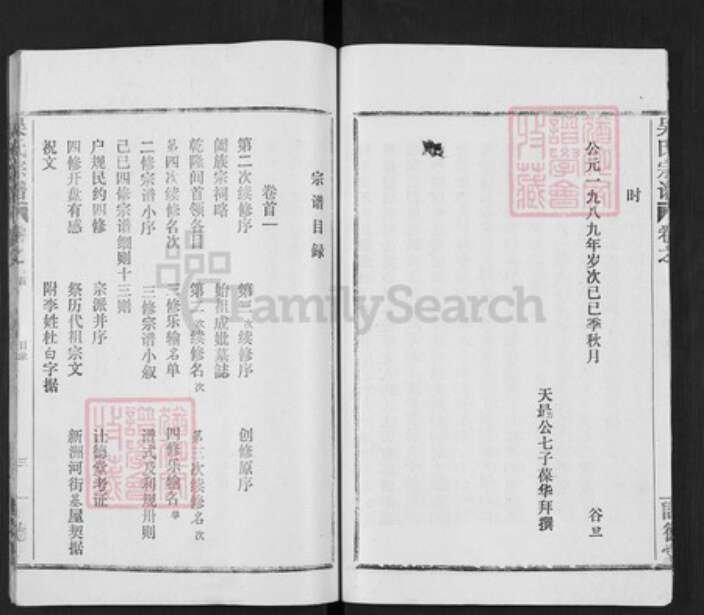 吴氏宗谱
时
公元一九八九年岁次己巳季秋月
谷旦
天最公七子葆华拜撰
宗谱目录
卷首一
第二次续修序
创修原序
阖族宗祠略
始祖成妣墓誌
乾隆间首领合目
第二次续修名次
第三次续修名次
第四次续修名次
三修乐输名单
四修乐输名
二修宗谱小序
三修宗谱小叙
谱式及利规卅则
己巳四修宗谱细则十三则
户规民约四修
宗派并序
让德堂考证
四修开盘有感
祭历代祖宗文
新洲河街基屋契据
祝文
附李姓杜白字据
FamilySearch